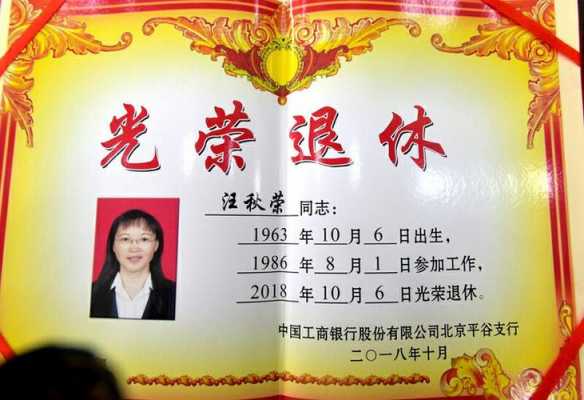 光荣退休
汪秋荣同志：
1963年10月6日出生，
1986年8月1日参加工作，
2018年10月6日光荣退休。
中国工商银行股份有限公司北京平谷支行
二〇一八年十月